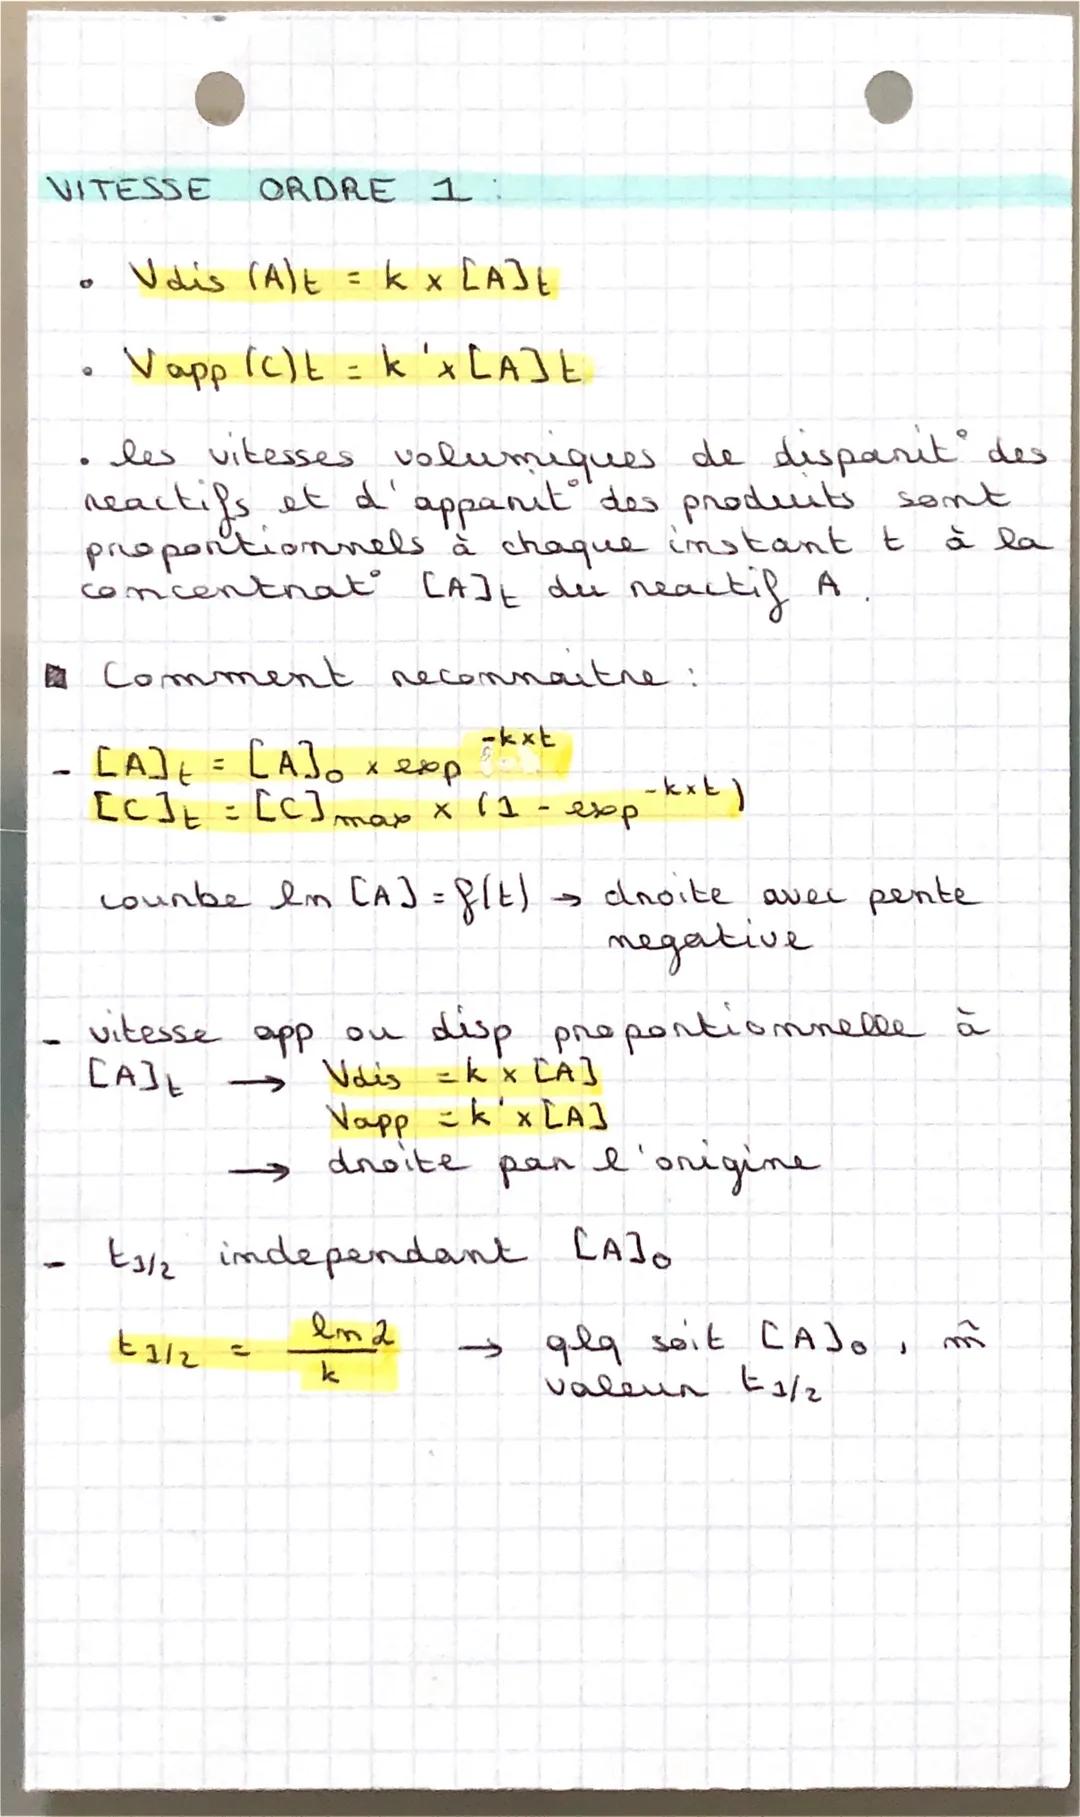 VITESSE ORDRE 1 :
• Vdis (A)t = k x [A]t
• Vapp (C)t = k' x [A]t
• les vitesses volumiques de disparit° des
reactifs et d'apparit° des produits sont
proportionnels à chaque instant t à la
concentrat° [A]t du reactif A.
Comment reconnaitre :
- [A]t = [A]0 x exp^-kxt
[C]t = [C]max x (1 - exp^-kxt)
courbe ln [A] = f(t) → droite avec pente
negative
- vitesse app ou disp proportionnelle à
[A]t → Vdis = k x [A]
Vapp = k' x [A]
→ droite par l'origine
- t1/2 independant [A]0
t1/2 = ln2/k → qlq soit [A]0, m̂
valeur t1/2